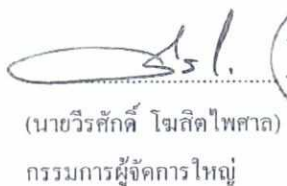 (นายวีรศักดิ์ โฆสิตไพศาล)
กรรมการผู้จัดการใหญ่